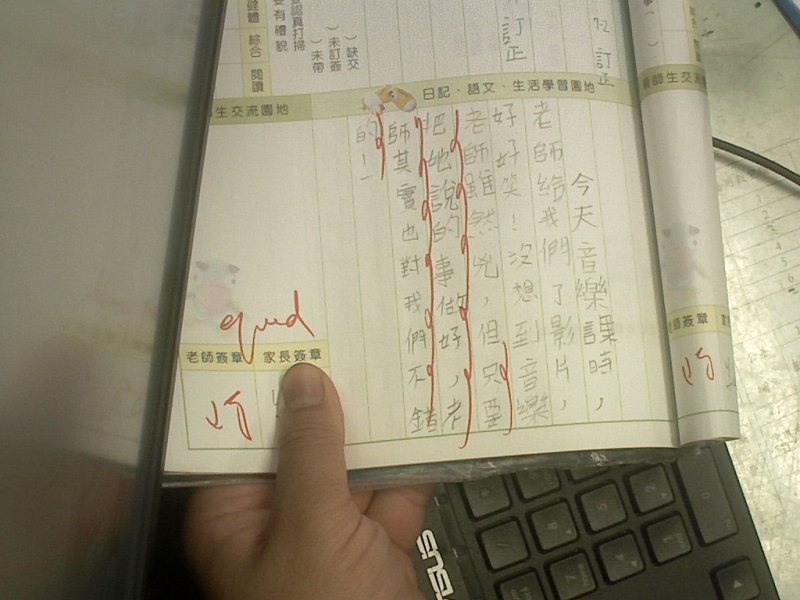 訂正
訂正
日記、語文、生活學習園地
今天音樂課時，
老師給我們了影片，
好好笑！沒想到音樂
老師雖然兇，但只要
把她說的事做好，老
師其實也對我們不錯
的！
缺交
未訂簽
未帶
認真打掃
有禮貌
健體 綜合 閱讀
生交流園地
good
老師簽章
家長簽章
師生交流園地
師簽章
ASUS